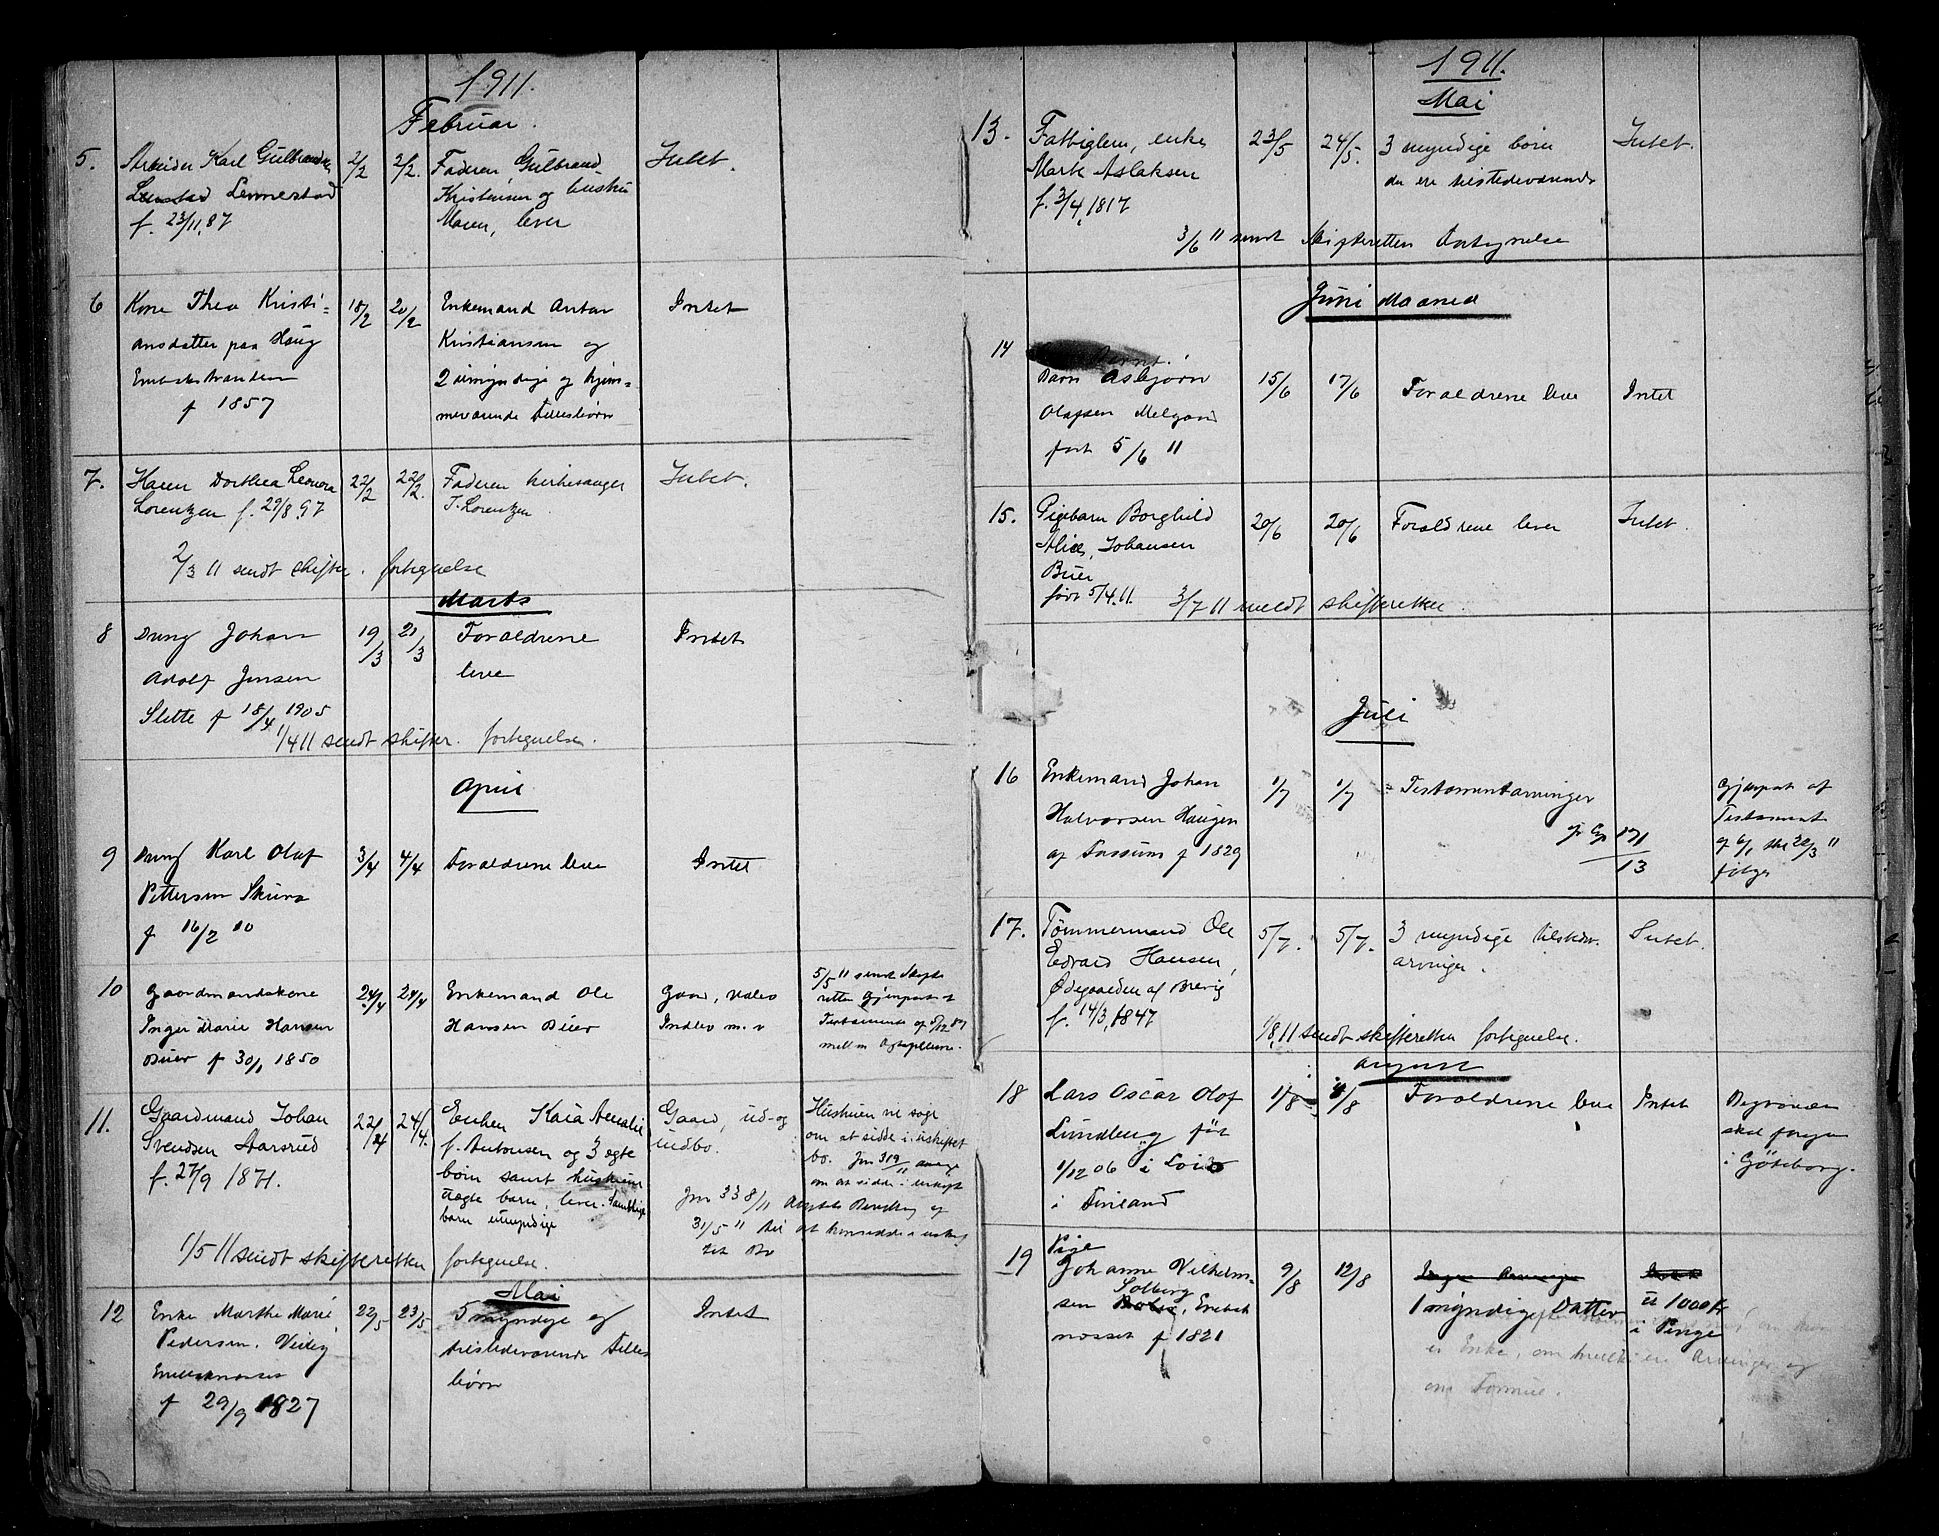 1911.
Februar.
5. Arbeider Karl Gulbrandsen 2/2 2/2. Faderen, Gulbrand Intet.
Lennestad Kristensen og hustru
f. 23/11.87 Maren, lever
6 Kone Thea Kristi= 18/2 20/2 Enkemand Anton Intet
ansdatter paa Haug Kristiansen og
2 umyndige og hjem=
f 1857 meværende Fællesbørn
7. Karen Dorthea Leonora 22/2 22/2. Faderen kirkesanger Intet.
Lorentzen f. 29/8.97 T. Lorentzen
2/3 11 sendt skifter. fortegnelse
Marts
8 Dreng Johan 19/3 21/3 Forældrene Intet
Adolf Jensen leve
Slette f 18/4 1905
1/4 11 sendt skifter. fortegnelse.
April
9 Dreng Karl Olaf 3/4 4/4 Forældrene leve Intet
Pettersen
f 16/2 10
10 Gaardmandskone 24/4 24/4 Enkemand Ole Gaard, Udbo 5/5 11 sendt Skifte
Inger Marie Hansen Hansen Buer Indbo m. v retten Gjenpart af
Buer f 30/1 1850 Testamente af 5/12 87
mellem Ægtefellerne.
11. Gaardmand Johan 22/4 24/4. Enken Kaia Amalie Gaard, ud- og Hustruen vil søge
Svendsen Aarsrud f. Antonsen og 3 ægte indbo. om at sidde i uskiftet
f. 27/9 1871. børn samt hustruens bo. Jnr 319/11
uægte barn, lever. Samtlige om at sidde i uskift
børn umyndige Jnr 338/11 Amtets Bevilling af
31/5 11 til at hensidde i uskif
tet Bo
1/5 11 sendt skifteretten fortegnelse.
Mai
12 Enke Marthe Marie 22/5 23/5 5 myndige og Intet
Pedersen, tilstedeværende Fælles
børn
f 29/9 1827
1911.
Mai
13. Fattiglem, enke 23/5 24/5. 3 myndige børn Intet.
Marte Aslaksen der ere tilstedeværende
f. 3/4, 1817
3/6 11 sendt Skifteretten Fortegnelse
Juni Maaned
14
Barn Asbjørn 15/6 17/6 Forældrene leve Intet
Olafsen Melgaard
født 5/6 11
15. Pigebarn Borghild 20/6 20/6 Forældrene lever Intet.
Alice, Johansen
Buer
født 5/4.11. 3/7 11 meldt skifteretten
Juli
16 Enkemand Johan 1/7 1/7 Testamentarvinger Gjenpart af
Halvorsen Haugen Testament
af Fossum f 1829 171/13 af 6/1 20/3 11
følger
17. Tømmermand Ole 5/7. 5/7. 3 myndige tilstedev. Intet.
Edvard Hansen, arvinger.
Ødegaarden af Brevig
f. 14/3, 1847
1/8, 11 sendt skifteretten fortegnelse.
August
18 Lars Oscar Olof 1/8 1/8 Forældrene leve Intet Begravelsen
Lundberg født skal foregaa
1/12 06 i i Göteborg.
i Finland
19 Pige
Johanne Vilhelm= 9/8 12/8 Ingen Arvinger Intet
Solberg
sen 1 myndig Datter 1000 Kr
f 1821 i Penge
er Enke, om hvilke er Arvinger og
om Formue.